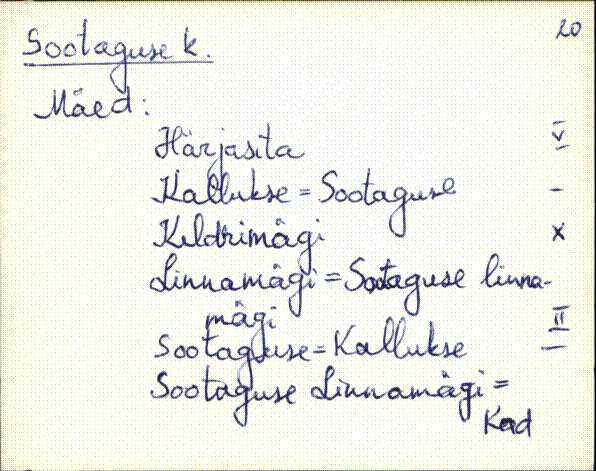 20
Sootaguse k.
Mäed:
Härjasita V
Kallukse = Sootaguse -
Keldrimägi x
Linnamägi = Sootaguse linna-
mägi II
Sootaguse = Kallukse —
Sootaguse Linnamägi =